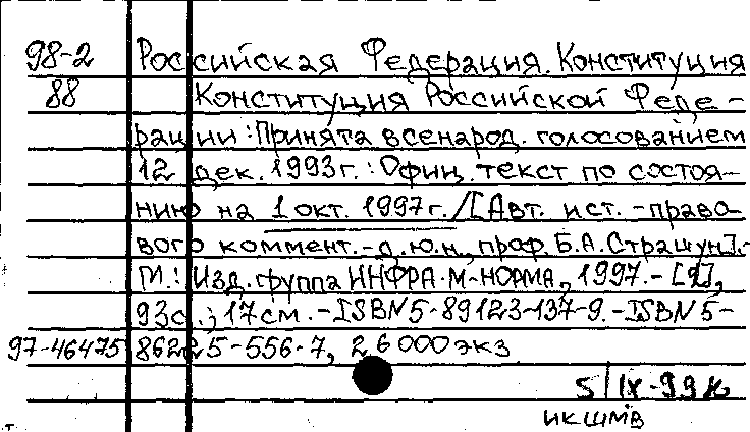 98-2 Российская Федерация. Конституция
88 Конституция Российской Феде-
рации : Принята всенарод. голосованием
12 дек. 1993г. : Офиц. текст по состоя-
нию на 1 окт. 1997г. /[Авт. ист.-право-
вого коммент.-д.ю.н., проф. Б.А.Страшун].-
М.: Изд. группа ИНФРА·М-НОРМА, 1997.- [2],
93с.; 17см. -ISBN 5-89123-137-9.-ISBN 5-
97-46475 86225-556-7, 26000экз
5/IX-99